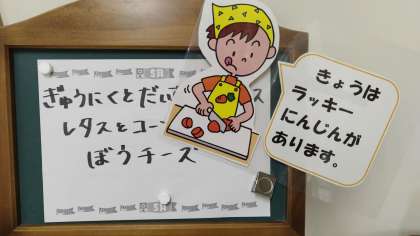 ぎゅうにくとだい
ス
レタスとコー
ぼうチーズ
きょうは
ラッキー
にんじんが
あります。